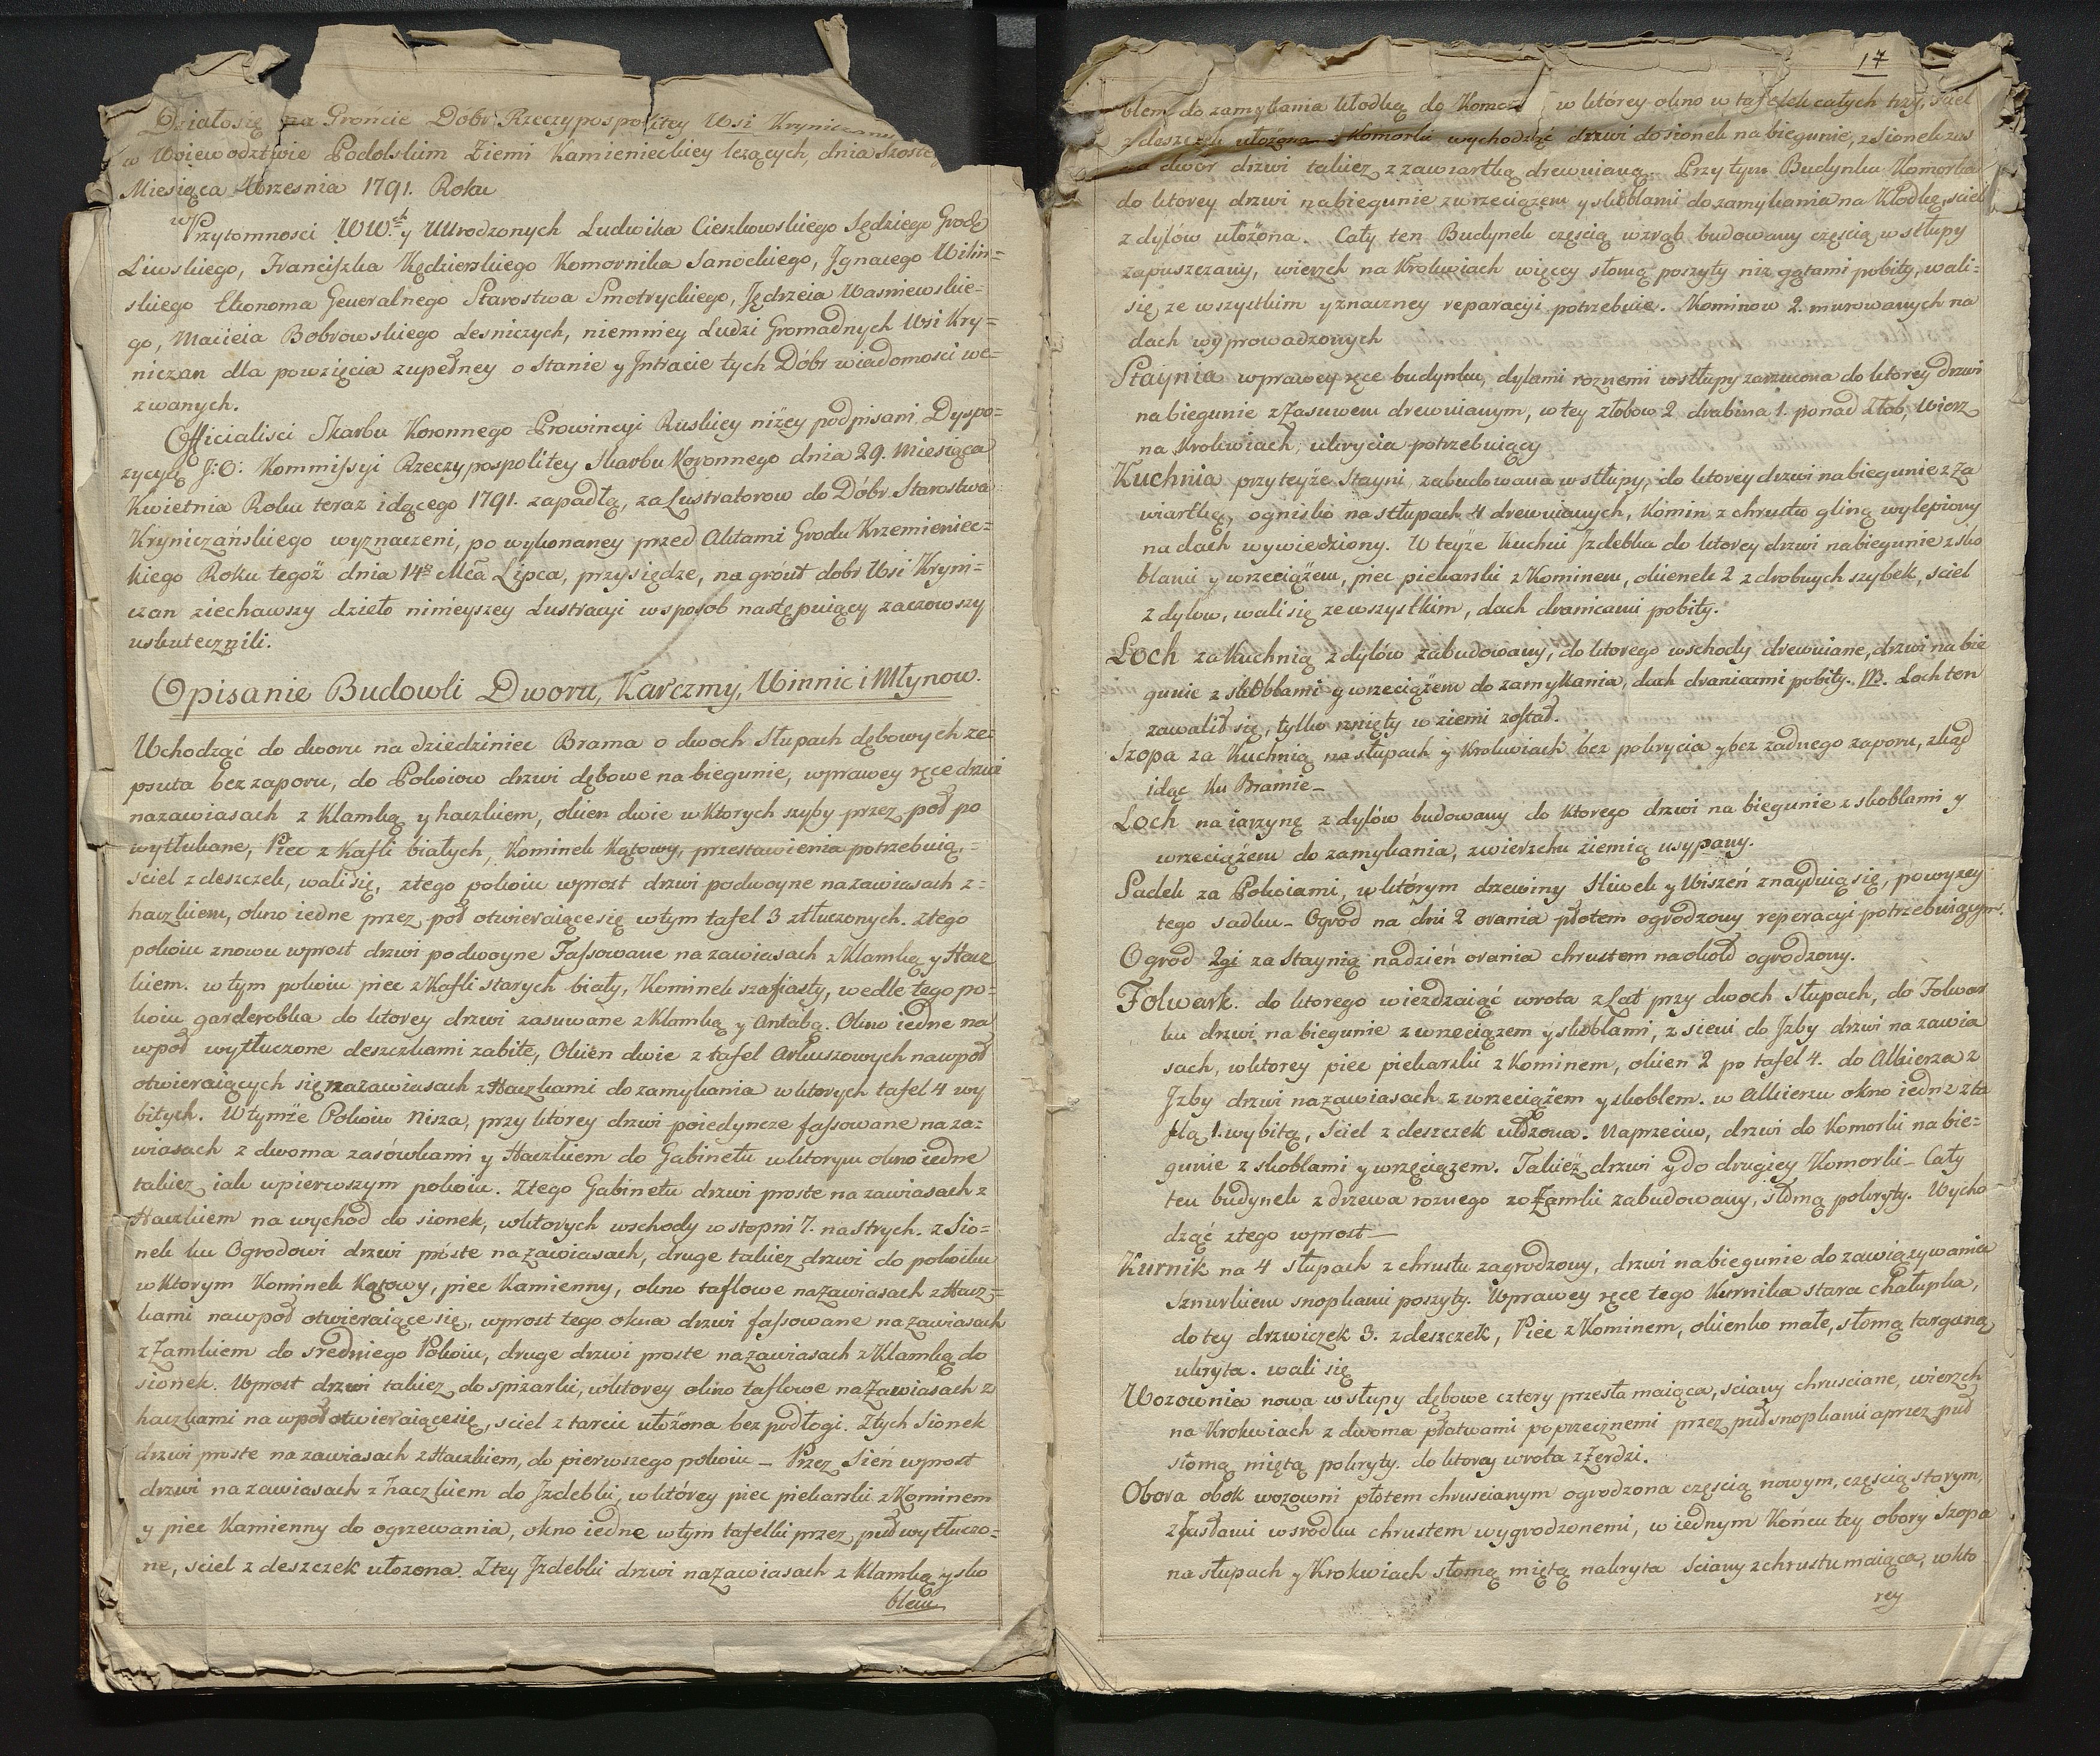 Działo się na Gróncie Dóbr Rzeczypospolitey Wsi Kryniczanu
w Woiewodztwie Podolskim Ziemi Kamienieckiey leżących, dnia Szoste
Miesiąca Wrzesnia 1791. Roku
w Przytomnosci WW. y Uurodzonych Ludwika Cieszkowskiego Sędziego Grodz
Liwskiego, Franciszka Kędzierskiego Komornika Sanockiego, Jgnacego Wilin=
skiego Ekonoma Generalnego Starostwa Smotryckiego, Jędrzeia Wasniewskie=
go, Macieia Bobrowskiego Lesniczych, niemniey Ludzi Gromadnych Wsi Kry=
niczan dla powzięcia zupełney o Stanie y Jntracie tych Dóbr wiadomosci we=
zwanych.
Officialisci Skarbu Koronnego Prowincyi Ruskiey niżey podpisani Dyspo=
zycyą J: O: Kommissyi Rzeczypospolitey Skarbu Koronnego dnia 29. Miesiąca
Kwietnia Roku teraz idącego 1791. zapadłą, za Lustratorow do Dóbr Starostwa
Kryniczańskiego wyznaczeni, po wykonaney przed Aktami Grodu Krzemieniec=
kiego Roku tegoż dnia 14º Mcã Lipca, przysiędze, na grónt dobr Wsi Kryni=
czan ziechawszy dzieło ninieyszey Lustracyi w sposob następuiący zaczowszy
uskutecznili.
Opisanie Budowli Dworu, Karczmy, Winnic i Młynow.
Wchodząć do dworu na dziedziniec Brama o dwoch Słupach dębowych ze=
psuta bez zaporu, do Pokoiow drzwi dębowe na biegunie, w prawey ręce drzwi
na zawiasach z Klamką y haczkiem, okien dwie w Ktorych szyby przez poł po
wytłukane, Piec z Kafli białych, Kominek Kątowy, przestawienia potrzebuią,=
sciel z deszczek, wali się, z tego pokoiu wprost drzwi podwoyne na zawiasach z=
haczkiem, okno iedne przez poł otwieraiące się w tym tafel 3 ztłuczonych. z tego
pokoiu znowu wprost drzwi podwoyne Fassowane na zawiasach z Klamką y Hacz
kiem. w tym pokoiu piec z Kafli starych biały, Kominek szafiasty, wedle tego po=
koiu garderobka do ktorey drzwi zasuwane z Klamką y Antabą. Okno iedne na
wpoł wytłuczone deszczkami zabite, Okien dwie z tafel Arkuszowych na wpoł
otwieraiących się na zawiasach z Haczkami do zamykania w ktorych tafel 4 wy
bitych. W tymże Pokoiu Nisza, przy ktorey drzwi poiedyncze fassowane na za=
wiasach z dwoma zasówkami y Haczkiem do Gabinetu w ktorym okno iedne
takież iak w pierwszym pokoiu. Z tego Gabinetu drzwi proste na zawiasach z
Haczkiem na wychod do sionek, w ktorych wschody w stopni 7. na strych. z Sio=
nek ku Ogrodowi drzwi proste na zawiasach, druge takież drzwi do pokoiku
w Ktorym Kominek Kątowy, piec Kamienny, okno taflowe na zawiasach z Hacz=
kami na wpoł otwieraiące się, wprost tego okna drzwi fassowane na zawiasach
z Zamkiem do sredniego Pokoiu, druge drzwi proste na zawiasach z Klamką do
sionek. Wprost drzwi takież do spiżarki, w ktorey okno taflowe na Zawiasach z
haczkami na wpoł otwieraiące się, sciel z tarcic ułożona bez podłogi. Z tych Sionek
drzwi proste na zawiasach z Haczkiem, do pierwszego pokoiu – Przez Sień wprost
drzwi na zawiasach z haczkiem do Jzdebki, w którey piec piekarski z Kominem
y piec Kamienny do ogrzewania, okno iedne w tym tafelki przez puł wytłuczo=
ne, sciel z deszczek ułożona. Z tey Jzdebki drzwi na zawiasach z Klamką y sko
blem
17
blem do zamykania kłodką do Komor w którey okno w tafelek całych trzy, sciel
z deszczek ułożona z Komorki wychodząć drzwi do sionek na biegunie, z Sionek zas
na dwor drzwi takież z zawiartką drewnianą. Przy tym Budynku Komorka
do ktorey drzwi na biegunie z wrzeciążem y skoblami do zamykania na Kłodkę, sciel
z dylów ułożona. Cały ten Budynek częscią w zrąb budowany częscią w słupy
zapuszczany, wierzch na Krokwiach więcey słomą poszyty niż gątami pobity, wali=
się ze wszystkim y znaczney reparacyi potrzebuie. Kominow 2. murowanych na
dach wyprowadzonych
Staynia w prawey ręce budynku, dylami roznemi w słupy zarzucona do ktorey drzwi
na biegunie z Zasuwem drewnianym, w tey żłobow 2 drabina 1. ponad żłob, Wierz
na Krokwiach, ukrycia potrzebuiący
Kuchnia przy teyże Stayni zabudowana w słupy, do ktorey drzwi na biegunie z Za
wiartką, ognisko na słupach 4 drewnianych, Komin z chrustu gliną wylepiony
na dach wywiedziony. W teyże Kuchni Jzdebka do ktorey drzwi na biegunie z sko
blami y wrzeciążem, piec piekarski z Kominem, okienek 2 z drobnych szybek, sciel
z dylow, wali się ze wszystkim, dach dranicami pobity.
Loch za Kuchnią z dylów zabudowany, do ktorego wschody drewniane, drzwi na bie
gunie z skoblami y wrzeciążem do zamykania, dach dranicami pobity. NB. Loch ten
zawalił się, tylko wnięty w ziemi został.
Szopa za Kuchnią na słupach y Krokwiach bez pokrycia y bez zadnego zaporu, zkąd
idąc Ku Bramie –
Loch na iarzynę z dylów budowany do Ktorego drzwi na biegunie z skoblami y
wrzeciążem do zamykania, z wierzchu ziemią usypany.
Sadek za Pokoiami, w ktorym drzewiny Sliwek y Wiszeń znayduią się, powyzey
tego sadku – Ogrod na dni 2 orania płotem ogrodzony reperacyi potrzebuiącym.
Ogrod 2gi za Staynią na dzień orania chrustem naokoło ogrodzony.
Folwark. do ktorego wiezdzaiąć wrota z Łat przy dwoch Słupach, do Folwar
ku drzwi na biegunie z wrzeciążem y skoblami, z sieni do Jzby drzwi na zawia
sach, w ktorey piec piekarski z Kominem, okien 2 po tafel 4. do Alkierza z
Jzby drzwi na zawiasach z wrzeciążem y skoblem. w Alkierzu okno iedne z ta
flą 1. wybitą, sciel z deszczek ułożona. Naprzeciw, drzwi do Komorki na bie=
gunie z skoblami y wrzęciązem. Takież drzwi y do drugiey Komorki – Cały
ten budynek z drzewa roznego w Zamki zabudowany, słomą pokryty. Wycho
dząć z tego wprost –
Kurnik na 4 słupach z chrustu zagrodzony, drzwi na biegunie do zawiązywania
Sznurkiem snopkami poszyty. W prawey ręce tego Kurnika stara chałupka,
do tey drzwiczek 3. z deszczek, Piec z Kominem, okienko małe, słomą targaną
ukryta. wali się
Wozownia nowa w słupy dębowe cztery przesła maiąca, sciany chrusciane, wierzch
na Krokwiach z dwoma płatwami poprzecznemi przez puł snopkami a przez puł
słomą miętą pokryty. do ktorey wrota z Żerdzi.
Obora obok wozowni płotem chruscianym ogrodzona częscią nowym, częscią starym,
z Jasłami w srodku chrustem wygrodzonemi, w iednym Końcu tey obory Szopa
na słupach y Krokwiach słomą miętą nakryta sciany z chrustu maiąca, w kto
rey